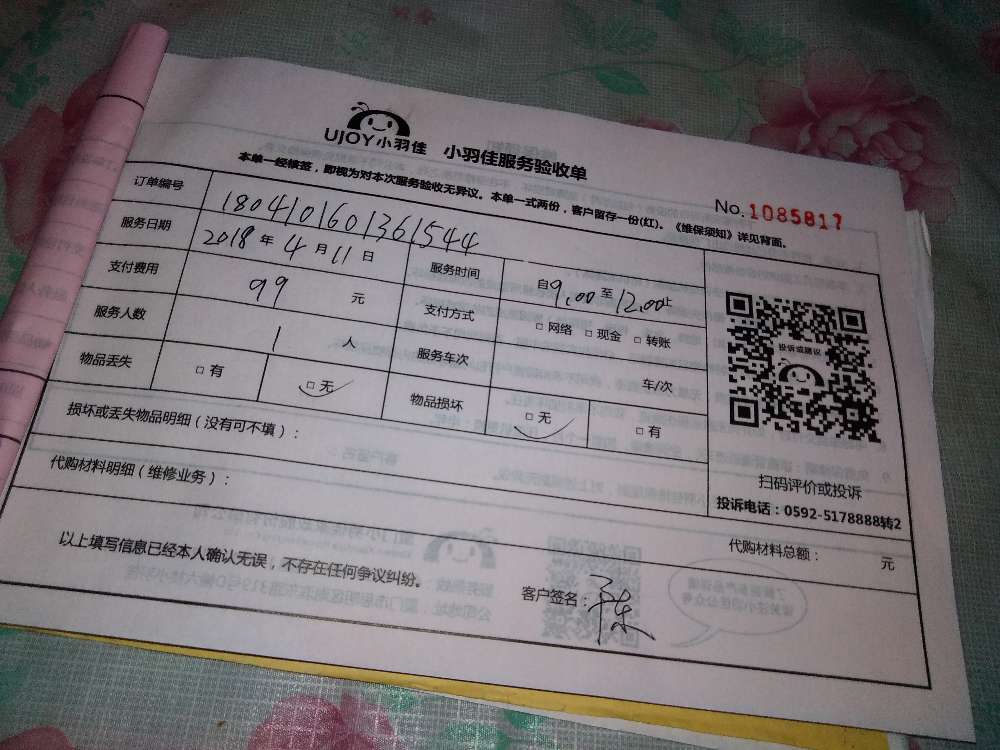 UJOY小羽佳 小羽佳服务验收单
本单一经接签，即视为对本次服务验收无异议。本单一式两份，客户留存一份(红)。《维保须知》详见背面。
No.1085817
订单编号 1804101601361544
服务日期 2018年4月11日 服务时间 自9:00至12:00止
支付费用 99元 支付方式 □网络 □现金 □转账
服务人数 1人 服务车次 车/次
物品丢失 □有 □无 物品损坏 □无 □有
投诉或建议
损坏或丢失物品明细（没有可不填）：
代购材料明细（维修业务）：
扫码评价或投诉
投诉电话：0592-5178888转2
代购材料总额： 元
以上填写信息已经本人确认无误，不存在任何争议纠纷。
客户签名：